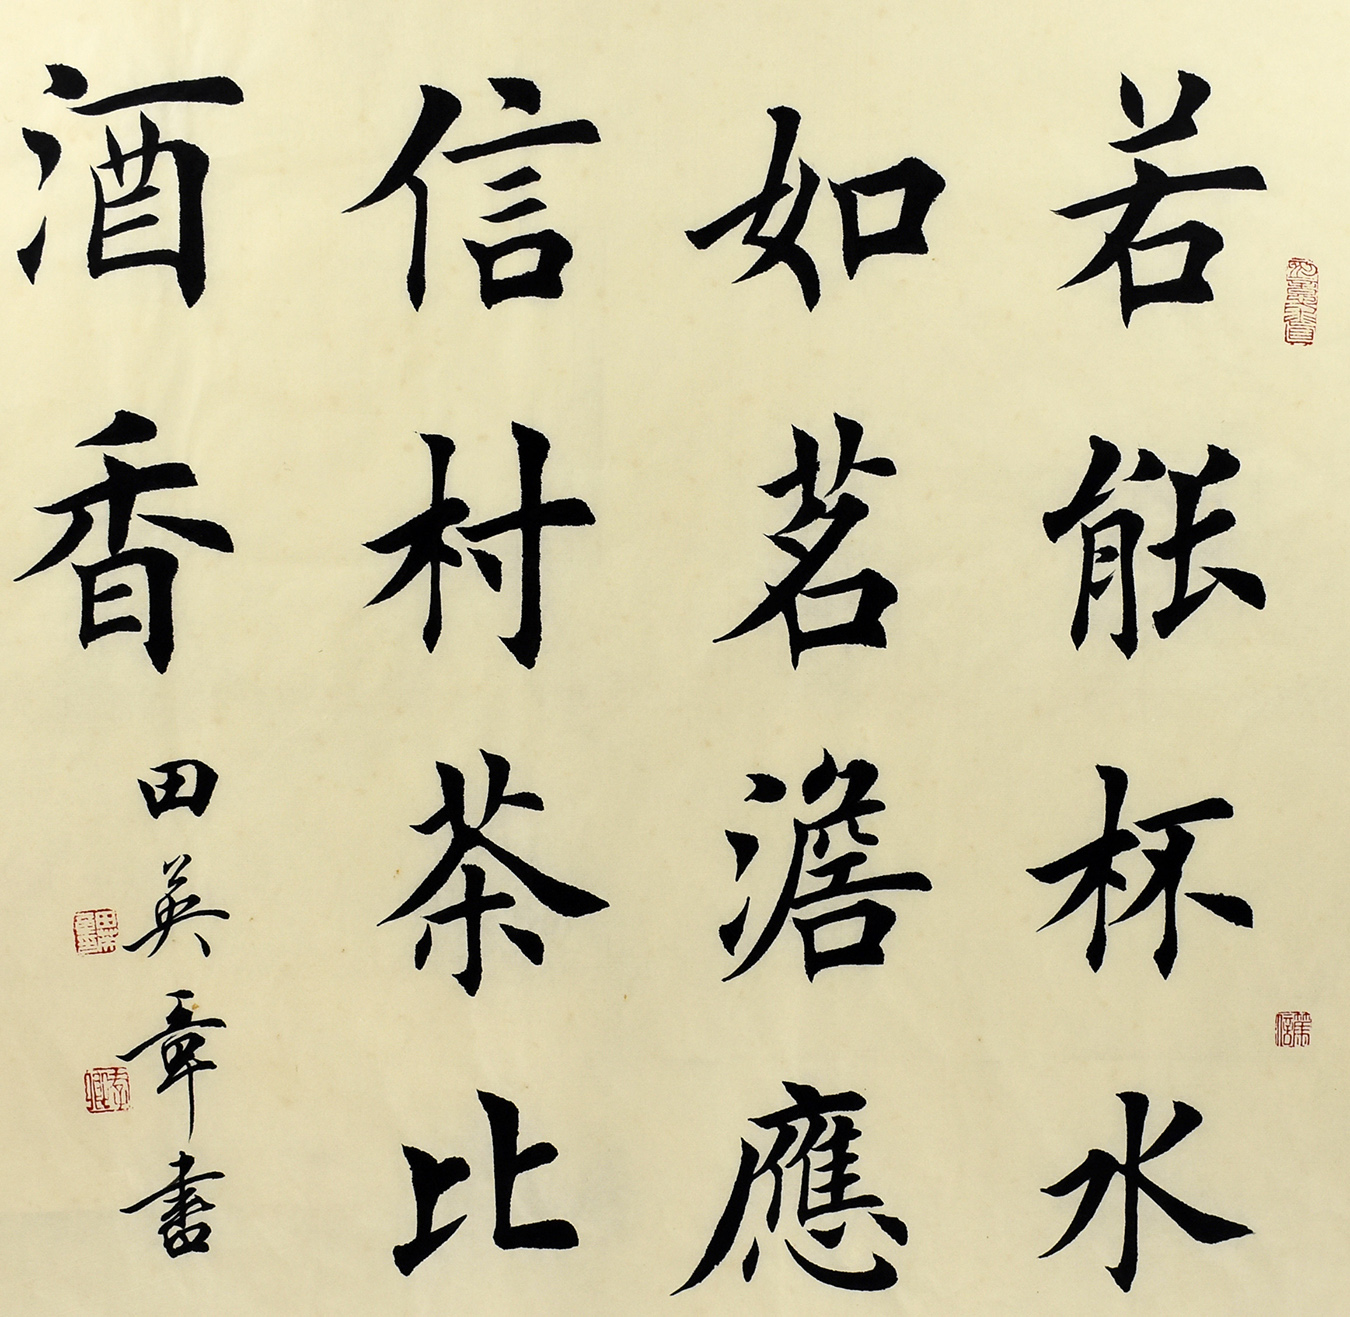 若能杯水
如茗澹應
信村茶比
酒香
田英章書